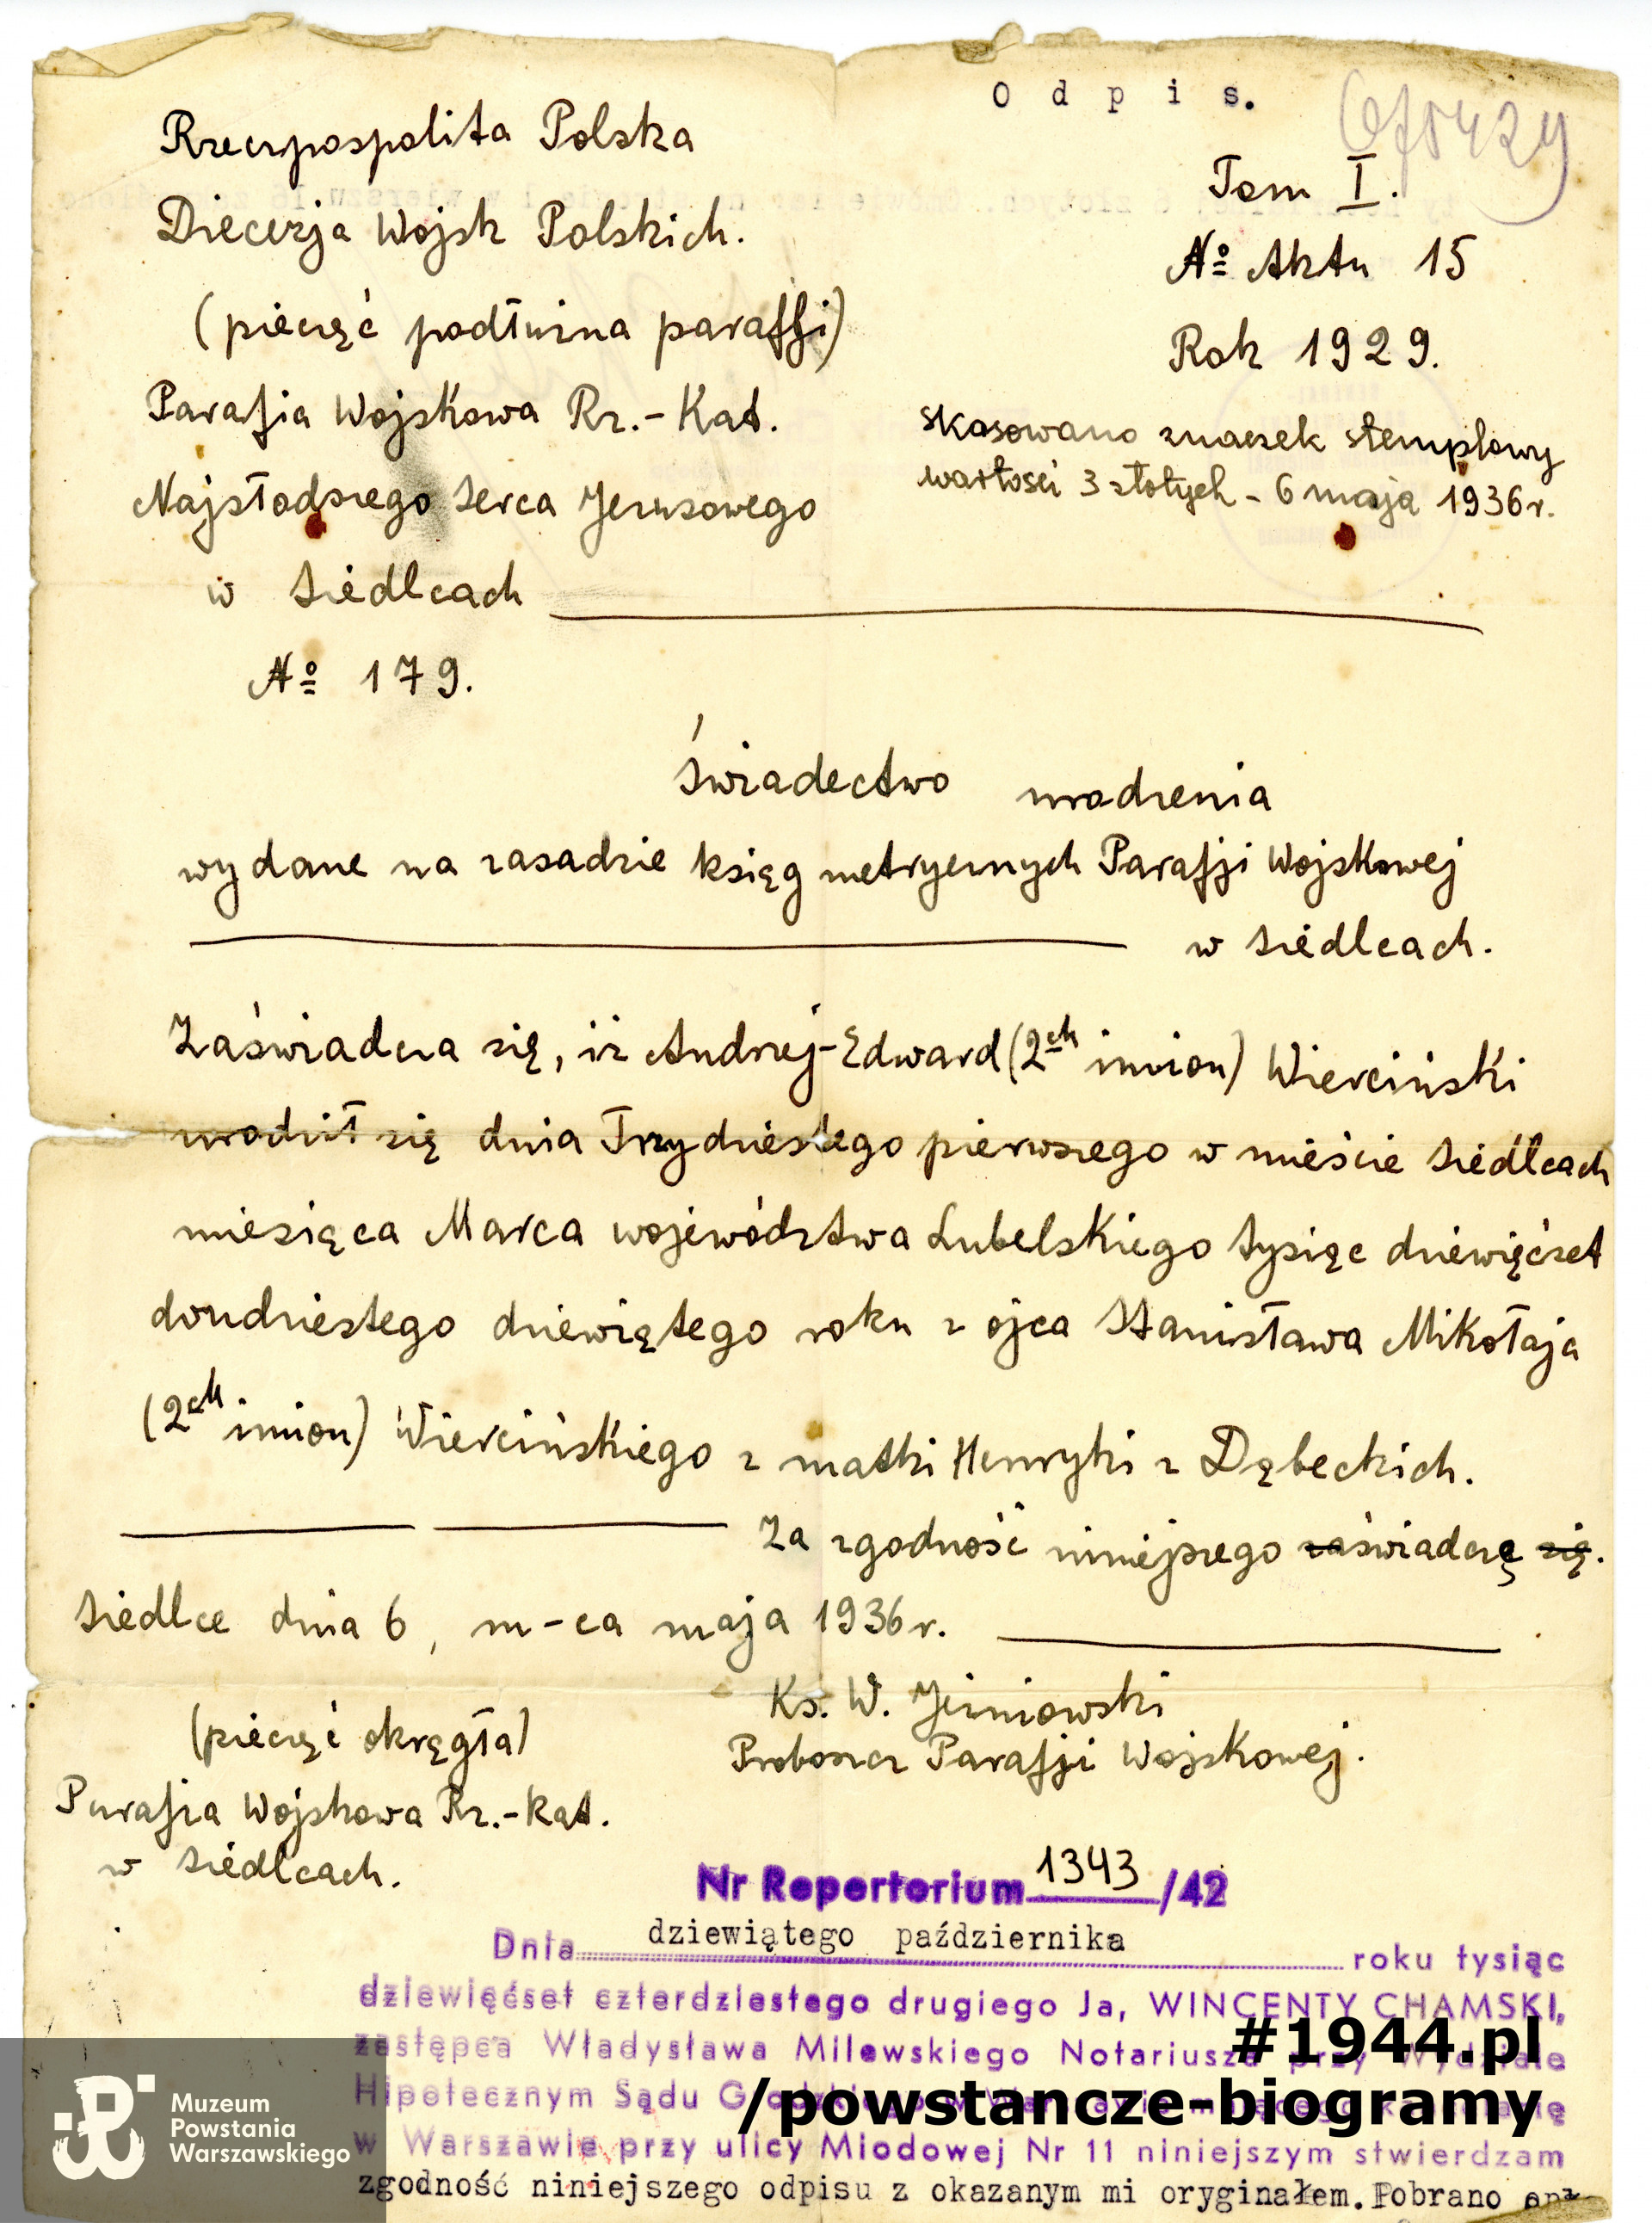 O d p i s.
Rzeczpospolita Polska
Diecezja Wojsk Polskich.
(pieczęć podłużna paraffji)
Parafia Wojskowa Rz.-Kat.
Najsłodszego Serca Jezusowego
w Siedlcach
№ 179.
Tom I.
№ Aktu 15
Rok 1929.
skasowano znaczek stemplowy
wartości 3 złotych - 6 maja 1936r.
Świadectwo urodzenia
wydane na zasadzie ksiąg metrycznych Parafji Wojskowej
w Siedlcach.
Zaświadcza się, iż Andrzej-Edward (2ch imion) Wierciński
urodził się dnia Trzydziestego pierwszego w mieście Siedlcach
miesiąca Marca województwa Lubelskiego tysiąc dziewięćset
dwudziestego dziewiątego roku z ojca Stanisława Mikołaja
(2ch imion) Wiercińskiego z matki Henryki z Dąbeckich.
Za zgodność niniejszego zaświadczę się.
Siedlce dnia 6, m-ca maja 1936r.
Ks. W.
Proboszcz Parafji Wojskowej.
(pieczęć okrągła)
Parafia Wojskowa Rz.-Kat.
w Siedlcach.
Nr Repertorium 1343/42
Dnia dziewiątego października roku tysiąc
dziewięćset czterdziestego drugiego Ja, WINCENTY CHAMSKI,
zastępca Władysława Milewskiego Notariusza przy Wydziale
Hipotecznym Sądu Grodzkiego w Warszawie mającego kancelarię
w Warszawie przy ulicy Miodowej Nr 11 niniejszym stwierdzam
zgodność niniejszego odpisu z okazanym mi oryginałem. Pobrano
#1944.pl
/powstancze-biogramy
Muzeum
Powstania
Warszawskiego